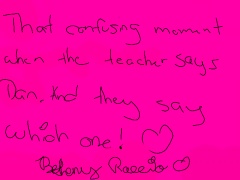 That confusing moment
when the teacher says
Dan, And they say
which one! ♡
Bethany ♡